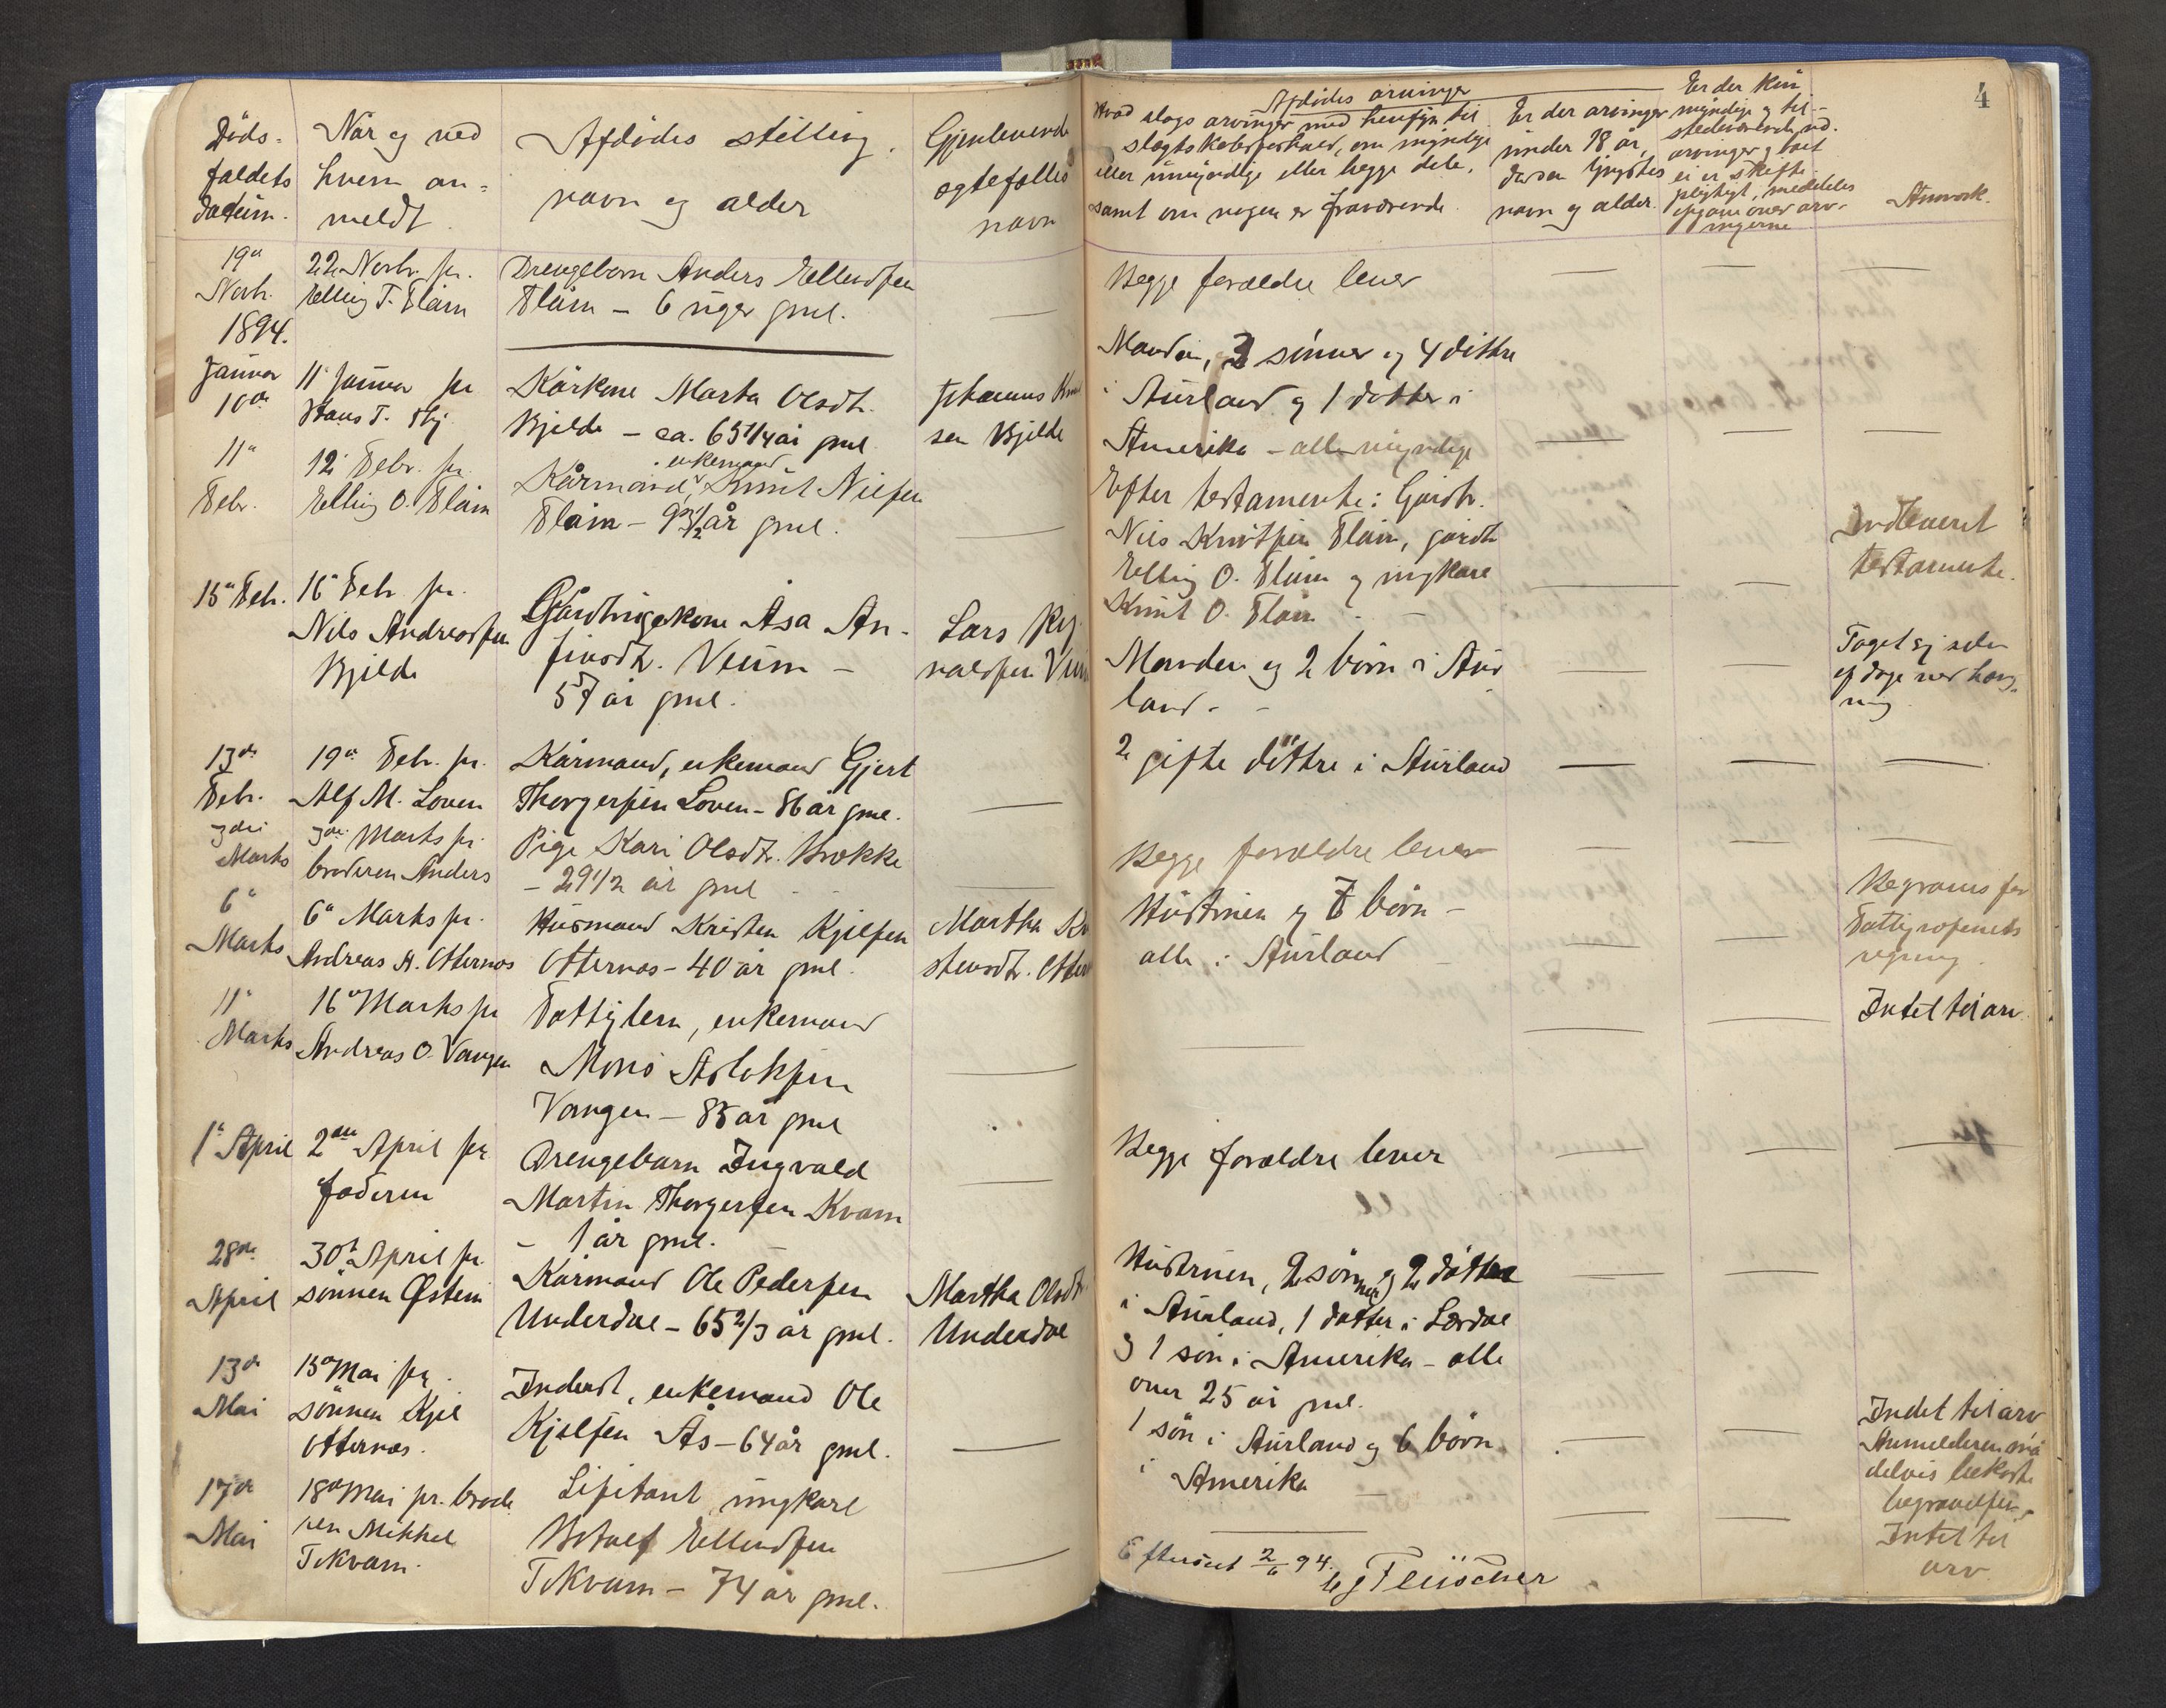 4
Döds-
faldets
datum.
Når og ved
hvem an-
meldt.
Afdödes stilling,
navn og alder
Gjenlevende
ægtefælles
navn
Afdödes arvinger
Hvad slags arvinger med hensyn til
slægtskabsforhold, om myndige
eller umyndige eller begge dele,
samt om nogen er fraværende.
Er der arvinger
under 18 år,
da den yngstes
navn og alder.
Er der kun
myndige og til-
stedeværende
arvinger og boet
ei er skifte
pligtigt, meddeles
opgave over arv-
ingerne
Anmærk.
19de
Novbr.
22 Novbr. pr.
Elling T. Flåm
Drengebarn Anders Ellendsen
Flåm – 6 uger gml.
—
Begge forældre lever
— — —
1894.
Januar
10de
11 Januar pr
Hans T.
Kårkone Marta Olsdtr.
Bjelde – ca. 65 1/4 år gml
Johannes Knud
sen Bjelde
Manden, 3 sönner og 4 döttre
i Aurland og 1 datter i
Amerika – alle myndige
— — —
11te
Febr.
12 Febr. pr.
Elling O. Flåm
enkemand
Kårmand, Knut Nilsen
Flåm – 93 1/2 år gml.
—
Efter testamente: Gårdbr.
Nils Knutsen Flåm, gårdbr
Elling O. Flåm og ungkare
Knut O. Flåm
— —
Indleveret
testamente.
15de Feb.
16de Febr pr.
Nils Andreassen
Bjelde
Gårdbrugerkone Åsa An-
finsdtr. Veum –
57 år gml.
Lars
valdsen
Manden og 2 börn i Aur
land. –
— —
Taget sig selv
af dage ved hæng-
ning
13de
Febr.
19de Feb. pr.
Alf M. Loven
Kårmand, enkemand Gjert
Thorgersen Loven – 86 år gml.
—
2 gifte döttre i Aurland
— — —
3die
Marts
3die Marts pr.
broderen Anders
Pige Kari Olsdtr. Brække
– 29 1/2 år gml
—
Begge forældre lever
— — —
6te
Marts
6te Marts pr.
Andreas A. Otternæs
Husmand Kristen Kjelsen
Otternæs – 40 år gml.
Martha Kri
stensdtr. Otter
Hustruen og 7 börn –
alle i Aurland
— —
Begraves for
Fattigvæsenets
regning.
11te
Marts
16de Marts pr
Andreas O. Vangen
Fattiglem, enkemand
Mons Aslaksen
Vangen – 85 år gml
—
— — —
Intet til arv
1ste April
2den April pr
faderen
Drengebarn Ingvald
Martin Thorgersen Kvam
– 1 år gml.
—
Begge forældre lever
— — —
28de
April
30te April pr.
sönnen Östein
Kårmand Ole Pedersen
Underdal – 65 2/3 år gml.
Martha Olsdtr
Underdal
Hustruen, 2 sönner og 2 döttre
i Aurland, 1 datter i Lærdal
og 1 sön i Amerika – alle
over 25 år gml.
— —
13de
Mai
15de Mai pr.
sönnen Kjel
Otternæs.
Inderst, enkemand Ole
Kjelsen Ås – 64 år gml.
—
1 sön i Aurland og 6 börn
i Amerika
— —
Indet til arv
Anmelderen må
delvis bekoste
begravelsen
17de
Mai
18de Mai pr. brode
ren Mikkel
Tokvam.
ungkarl
Botolf Ellendsen
Tokvam – 74 år gml.
—
— — —
Intet til
arv
Efterseet 2/6 94.
Fleischer